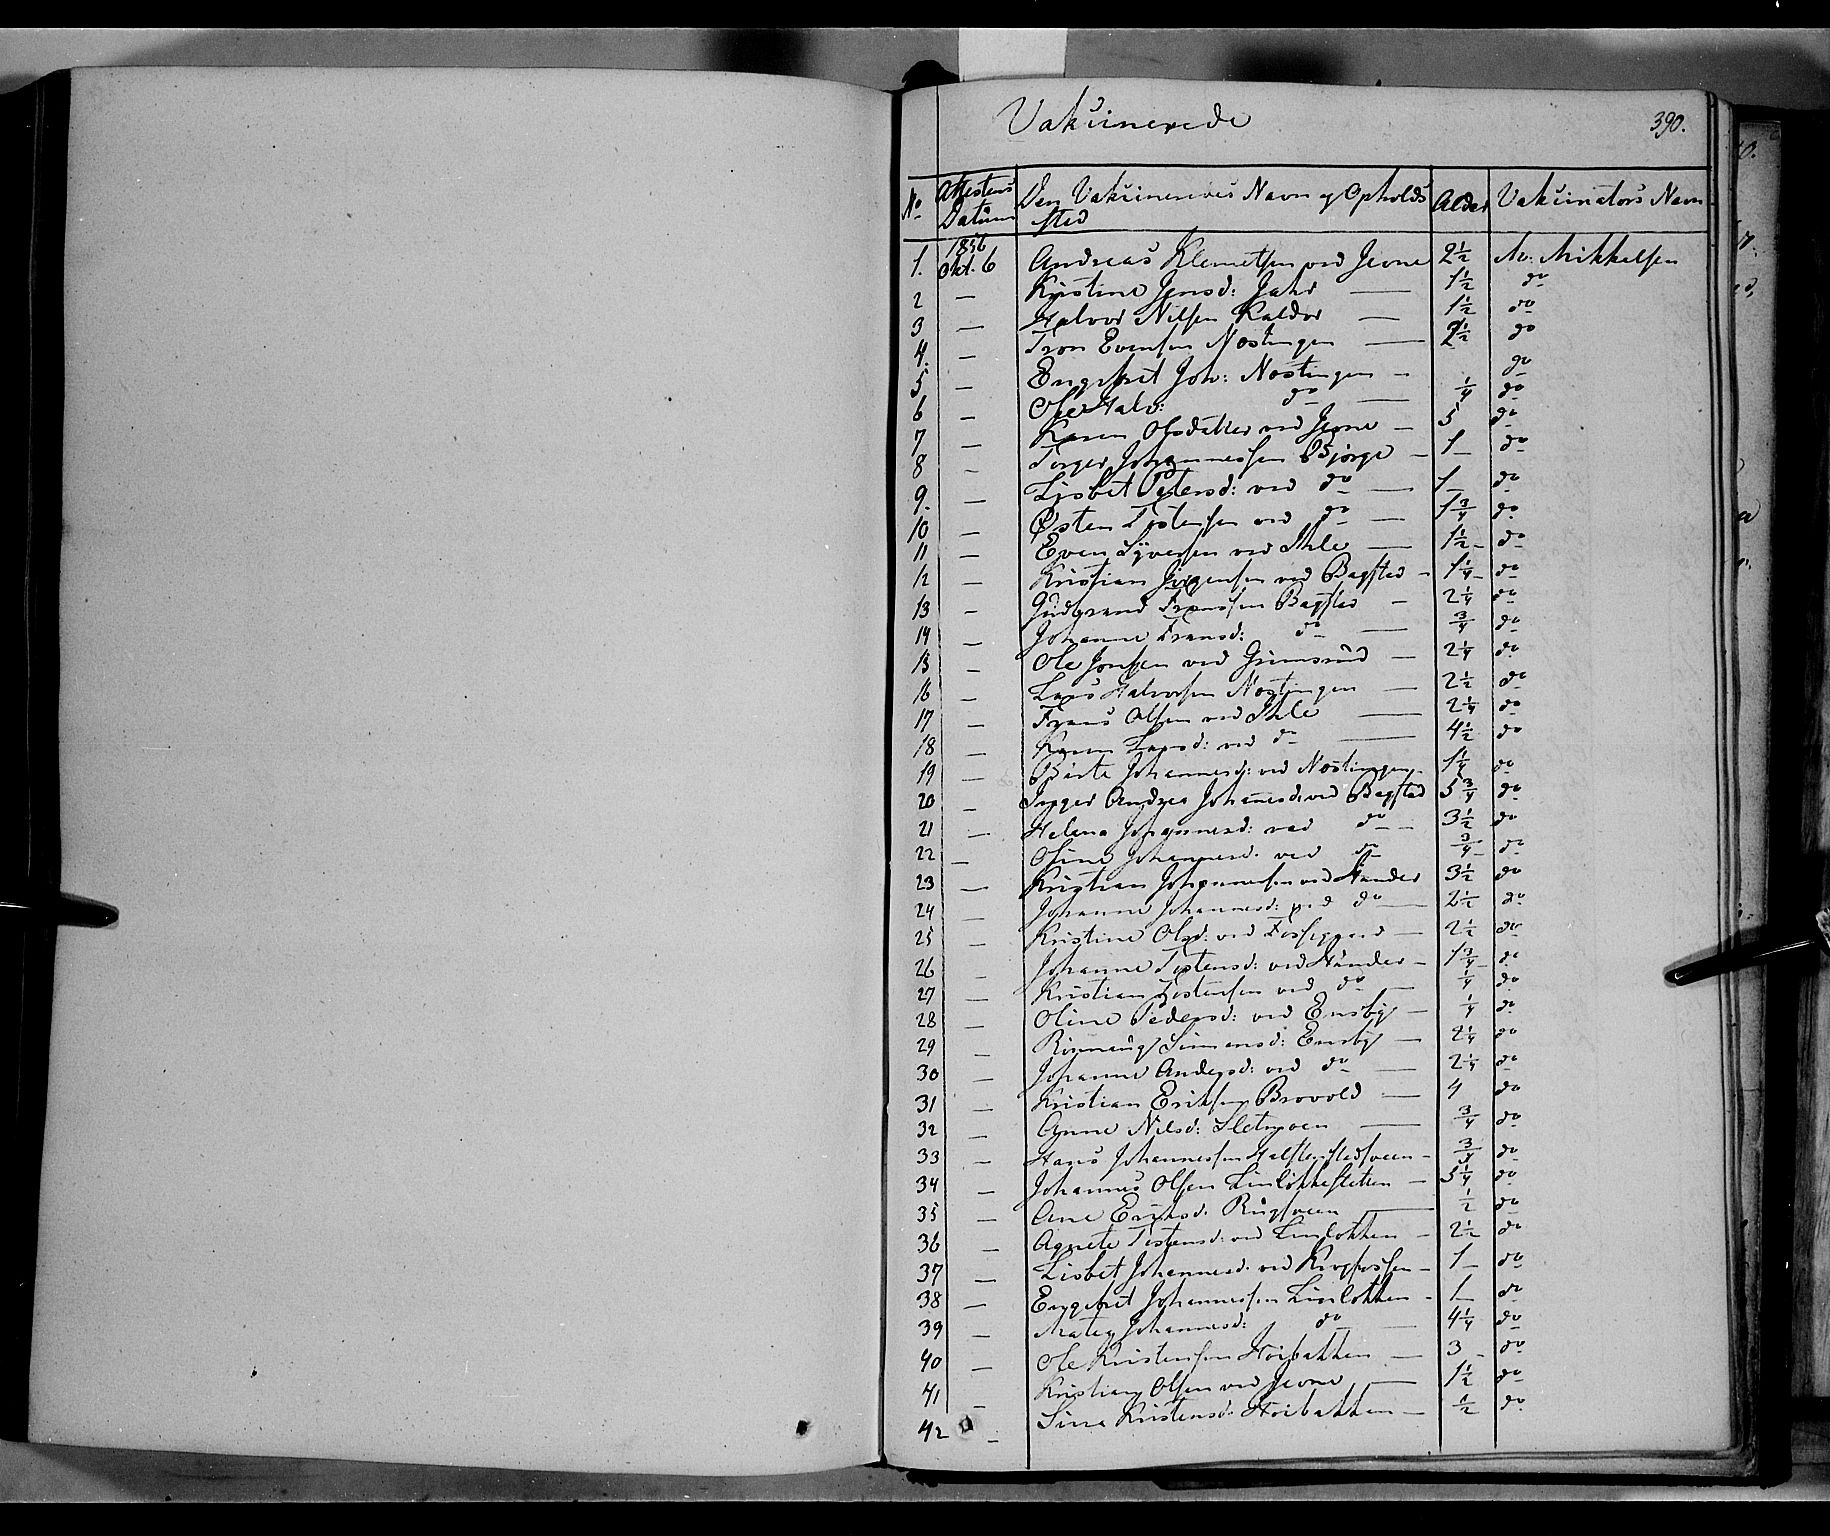 Vakcinerede
390.
No Attestens Datum Den Vakcineredes Navn og Opholds sted Alder Vakcinators Navn
1. 1856 Okt. 6 Andreas Klemetsen ved Jevne 2½ Av. Mikkelsen
2 — Kristine Jensd: Jahr — 1½ do
3 — Halvor Nilsen Kaldor — 1½ do
4. — Tron Evensen Nøstingen — 2½ do
5 — Engebret Joh: Nøstingen — do
6 — Ole Halv: do — ¼ do
7 — Karen Olsdatter ved Jevne — 5 do
8 — Torger Johannessen Bjørge — 1 — do
9. — Lisbet Petersd: ved do — 1 do
10 — Østen Tostensen ved do — 1¾ do
11 — Even Syversen ved Ihle — 1½ — do
12 — Kristian Jørgensen ved Bagstad — 1¼ — do
13 — Gudbrand Franssen Bagstad — 2¼ do
14 — Johanne Fransd: do — ¾ do
15 — Ole Jonsen ved Grimsrud — 2¼ do
16 — Lars Halvorsen Nøstingen — 2½ do
17 — Frans Olsen ved Ihle — 2¼ do
18 — Karen Larsd: ved do — 4½ do
19 — Birte Johannesd: ved Nøstingen. 1¼ do
20 — Inger Andrea Johanesd: ved Bagstad 5¾ do
21 — Helena Johannesd: ved do — 3½ do
22 — Oline Johannesd. ved do ¾ — do
23 — Kristian Johannessen ved 3½ do
24 — Johanne Johannesd: ved do — 2½ do
25 — Kristine Olsd: ved Fossegaard — 2½ do
26 — Johanne Tostensd: ved — 1¾ — do
27 — Kristian Tostensen ved do — ¼ do
28 — Oline Pedersd: ved Ensby — ¼ do
29 — Rønnaug Simensd: Ensby — 2¼ do
30 — Johanne Andersd: ved do — 2¼ do
31 — Kristian Eriksen Brovold — 4 do
32 — Anne Nilsd: Sletmoen — ¾ do
33 — Hans Johannessen — ¾ do
34 — Johannes Olsen Linløkkesletten — 5¼ do
35 — Ane Eriksd. Rugsveen — ½ do
36 — Agnete Tostensd: ved Linløkken — 2½ do
37 — Lisbet Johannesd. ved — 1 — do
38 — Engebret Johannessen Linløkken — 1 — do
39 — Mathea Johannesd: do — 4¼ do
40 — Ole Kristensen Høibakken — 3 — do
41 — Kristian Olsen ved Jevne — 1½ do
42 — Sina Kristensd. Høibakken — ½ do